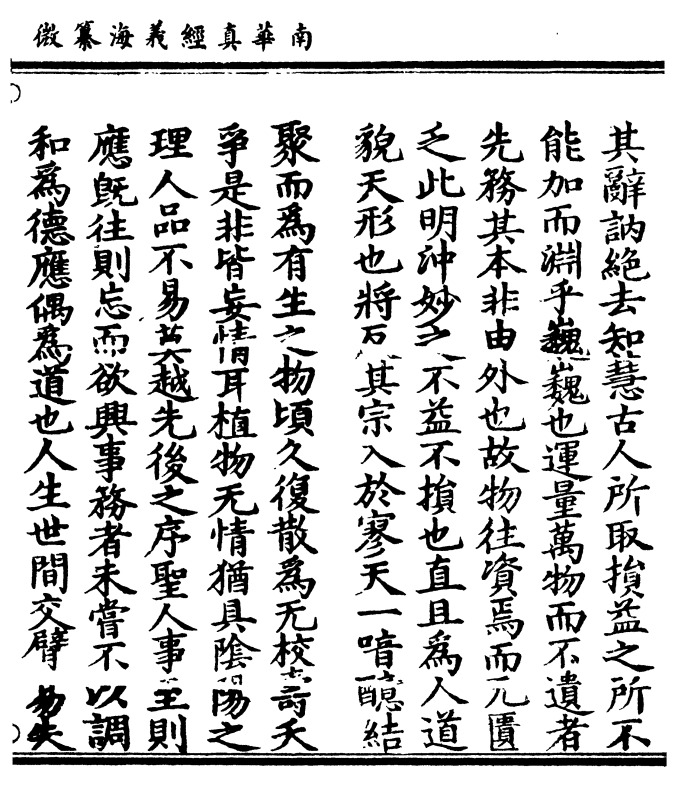 南華真經義海纂微
其辭訥絶去知慧古人所取損益之所不
能加而淵乎巍巍也運量萬物而不遺者
先務其本非由外也故物往資焉而无匱
乏此明沖妙之 不益不損也直且為人道
貌天形也將反其宗入於寥天一喑醷結
聚而為有生之物頃久復散為无校壽夭
爭是非皆妄情耳植物无情猶具陰陽之
理人品不易 越先後之序聖人事至則
應既往則忘而欲興事務者未嘗不以調
和為德應偶為道也人生世間交臂易失